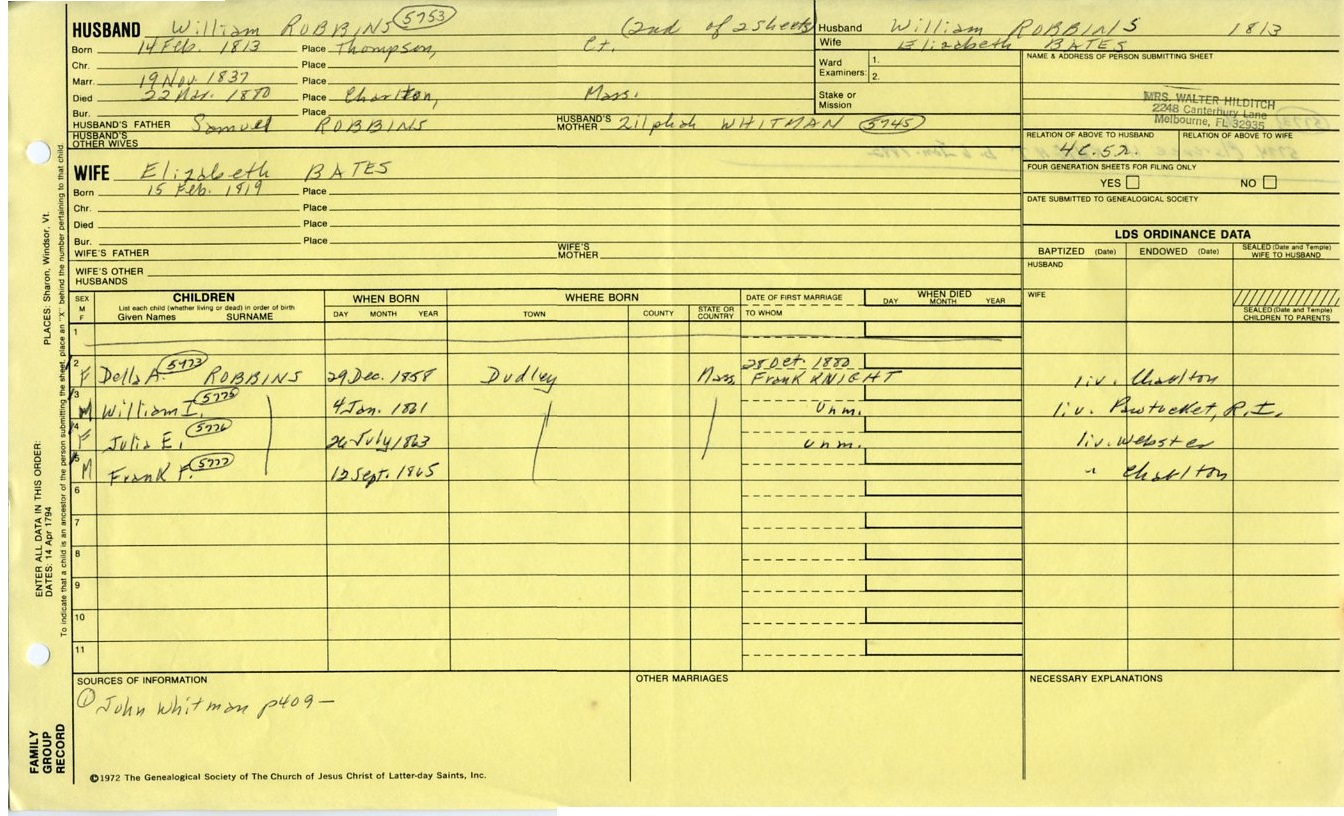 HUSBAND William ROBBINS 5753 (2nd of 2 sheets)
Born 14 Feb. 1813 Place Thompson, Ct.
Chr. Place
Marr. 19 Nov. 1837 Place
Died 22 Mar. 1880 Place Charlton, Mass.
Bur. Place
HUSBAND'S FATHER Samuel ROBBINS HUSBAND'S MOTHER Zilphah WHITMAN 5745
HUSBAND'S OTHER WIVES
Husband William ROBBINS 1813
Wife Elizabeth BATES
Ward Examiners: 1.
2.
Stake or Mission
NAME & ADDRESS OF PERSON SUBMITTING SHEET
MRS. WALTER HILDITCH
2248 Canterbury Lane
Melbourne, FL 32935
RELATION OF ABOVE TO HUSBAND RELATION OF ABOVE TO WIFE
4C.5R.
FOUR GENERATION SHEETS FOR FILING ONLY
YES NO
DATE SUBMITTED TO GENEALOGICAL SOCIETY
WIFE Elizabeth BATES
Born 15 Feb. 1819 Place
Chr. Place
Died Place
Bur. Place
WIFE'S FATHER WIFE'S MOTHER
WIFE'S OTHER HUSBANDS
LDS ORDINANCE DATA
BAPTIZED (Date) ENDOWED (Date) SEALED (Date and Temple) WIFE TO HUSBAND
HUSBAND
WIFE
SEALED (Date and Temple) CHILDREN TO PARENTS
SEX M F CHILDREN WHEN BORN WHERE BORN DATE OF FIRST MARRIAGE WHEN DIED
List each child (whether living or dead) in order of birth
Given Names SURNAME DAY MONTH YEAR TOWN COUNTY STATE OR COUNTRY TO WHOM DAY MONTH YEAR
1
2 28 Oct. 1880
F Della A. 5773 ROBBINS 29 Dec. 1858 Dudley Mass. Frank KNIGHT liv. Charlton
3 M William I. 5775 4 Jan. 1861 Unm. liv. Pawtucket, R.I.
4 F Julia E. 5776 26 July 1863 Unm. liv. Webster
5 M Frank F. 5777 12 Sept. 1865 " Charlton
6
7
8
9
10
11
SOURCES OF INFORMATION
① John Whitman p409—
OTHER MARRIAGES
NECESSARY EXPLANATIONS
©1972 The Genealogical Society of The Church of Jesus Christ of Latter-day Saints, Inc.
FAMILY GROUP RECORD
ENTER ALL DATA IN THIS ORDER:
DATES: 14 Apr 1794
PLACES: Sharon, Windsor, Vt.
To indicate that a child is an ancestor of the person submitting the sheet, place an "X" behind the number pertaining to that child.